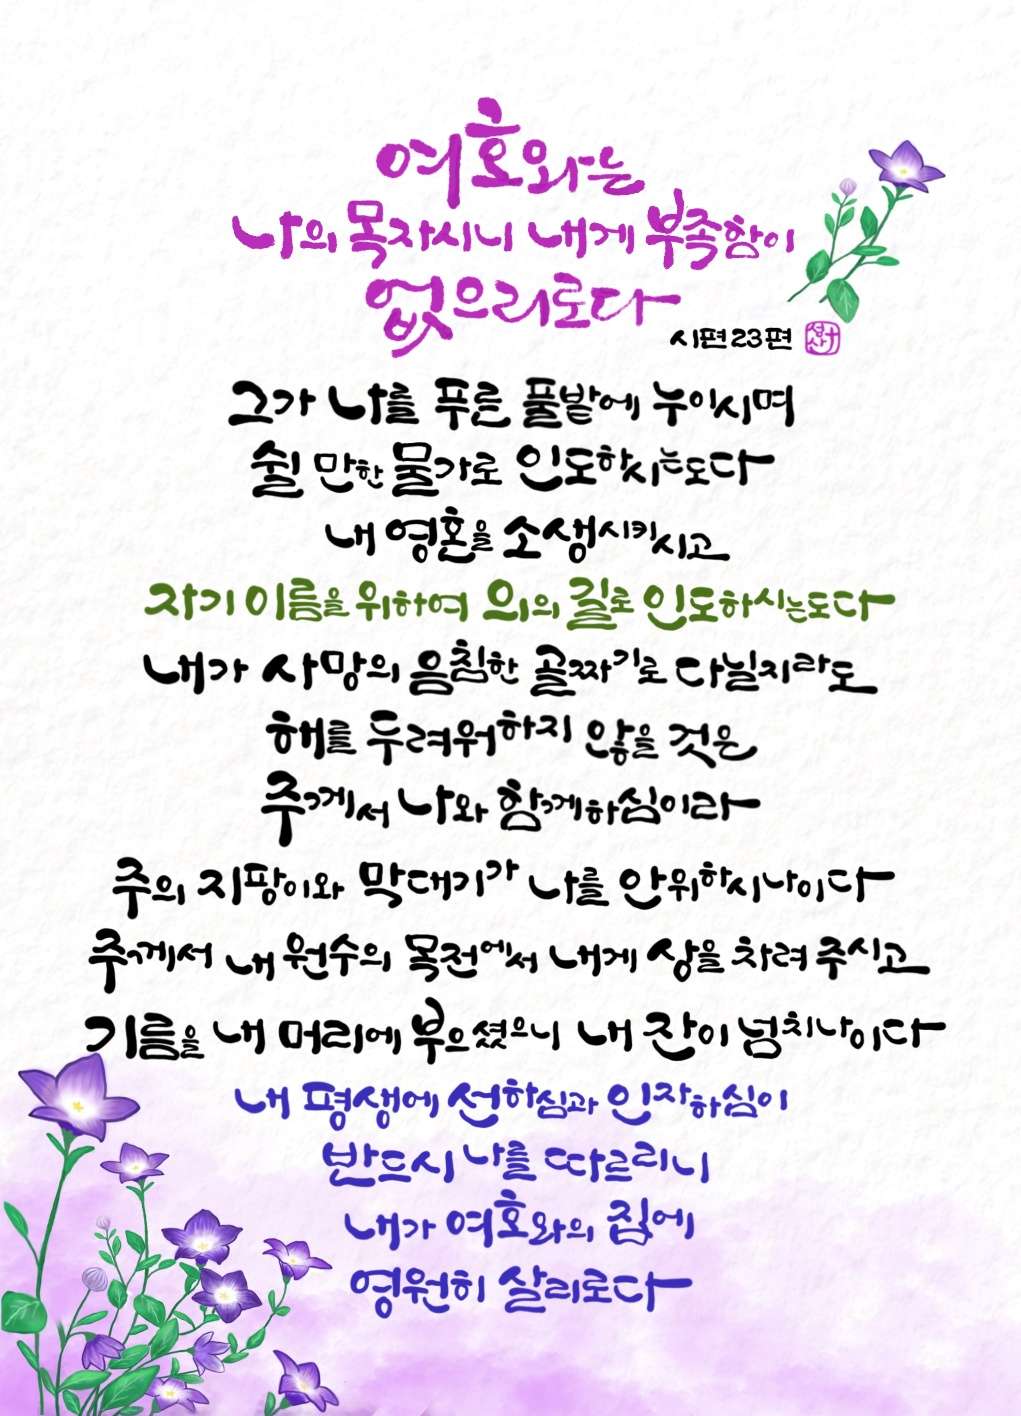 여호와는
나의 목자시니 내게 부족함이
없으리로다
시편 23편
그가 나를 푸른 풀밭에 누이시며
쉴 만한 물가로 인도하시는도다
내 영혼을 소생시키시고
자기 이름을 위하여 의의 길로 인도하시는도다
내가 사망의 음침한 골짜기로 다닐지라도
해를 두려워하지 않을 것은
주께서 나와 함께하심이라
주의 지팡이와 막대기가 나를 안위하시나이다
주께서 내 원수의 목전에서 내게 상을 차려 주시고
기름을 내 머리에 부으셨으니 내 잔이 넘치나이다
내 평생에 선하심과 인자하심이
반드시 나를 따르리니
내가 여호와의 집에
영원히 살리로다